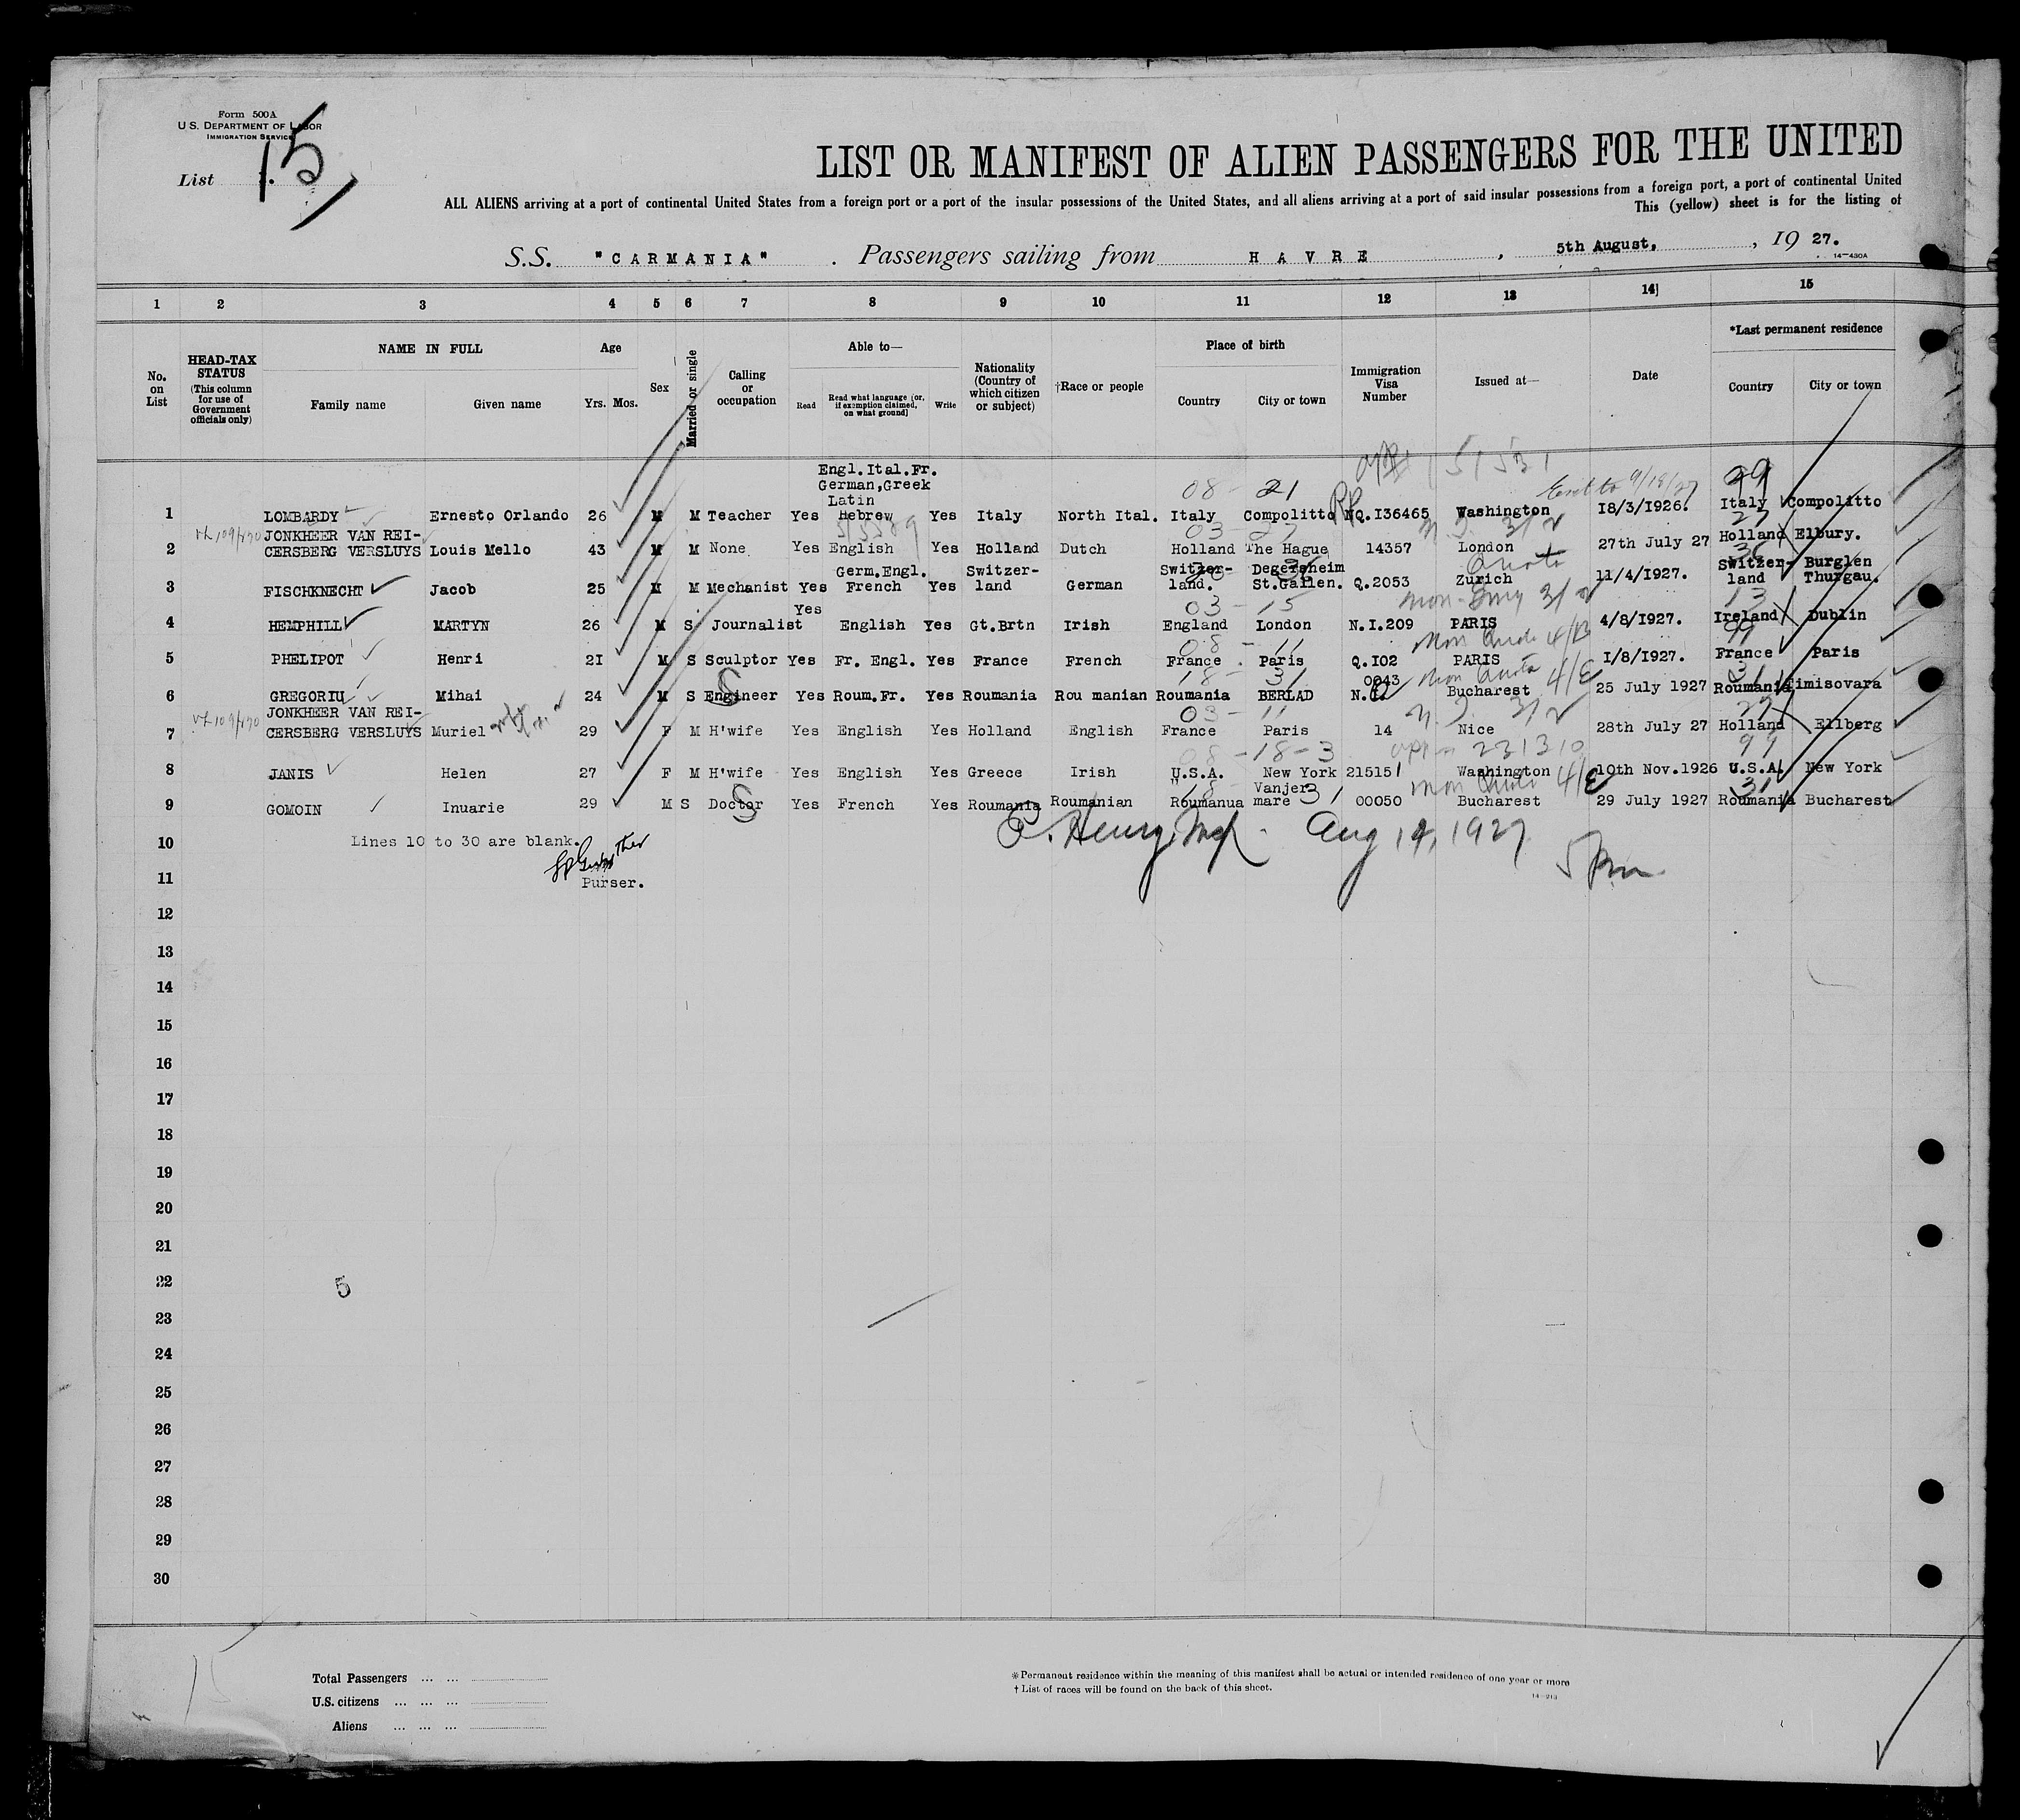 Form 500A
U.S. DEPARTMENT OF LABOR
IMMIGRATION SERVICE
List 15
LIST OR MANIFEST OF ALIEN PASSENGERS FOR THE UNITED
ALL ALIENS arriving at a port of continental United States from a foreign port or a port of the insular possessions of the United States, and all aliens arriving at a port of said insular possessions from a foreign port, a port of continental United
This (yellow) sheet is for the listing of
S.S. "CARMANIA" . Passengers sailing from HAVRE , 5th August, , 19 27.
14-430A
1 2 3 4 5 6 7 8 9 10 11 12 13 14 15
No. on List
HEAD-TAX STATUS (This column for use of Government officials only)
NAME IN FULL
Family name Given name
Age
Yrs. Mos.
Sex
Married or single
Calling or occupation
Able to—
Read Read what language [or, if exemption claimed, on what ground] Write
Nationality (Country of which citizen or subject)
†Race or people
Place of birth
Country City or town
Immigration Visa Number
Issued at—
Date
*Last permanent residence
Country City or town
Engl.Ital.Fr.
German,Greek
Latin
08 - 21 99
1 LOMBARDY Ernesto Orlando 26 M M Teacher Yes Hebrew Yes Italy North Ital. Italy Compolitto NQ.I36465 Washington I8/3/I926. Italy Compolitto
JONKHEER VAN REI- 03 - 27 N.I. 3/2 27
2 CERSBERG VERSLUYS Louis Mello 43 M M None Yes English Yes Holland Dutch Holland The Hague 14357 London 27th July 27 Holland Elbury.
Germ.Engl. Switzer- Switzer- Degersheim Quota Switzer- Burglen
3 FISCHKNECHT Jacob 25 M M Mechanist Yes French Yes land German land. St.Gallen. Q.2053 Zurich 11/4/1927. land Thurgau.
Yes 03 - 15 13
4 HEMPHILL MARTYN 26 M S Journalist English Yes Gt.Brtn Irish England London N.I.209 PARIS 4/8/1927. Ireland Dublin
08 - 11
5 PHELIPOT Henri 2I M S Sculptor Yes Fr. Engl. Yes France French France Paris Q.I02 PARIS I/8/1927. France Paris
18 - 31 0043 Non Quota 4/E 31
6 GREGORIU Mihai 24 M S Engineer Yes Roum.Fr. Yes Roumania Rou manian Roumania BERLAD N.Q. Bucharest 25 July 1927 Roumania Timisovara
JONKHEER VAN REI- 03 - 11 N.I. 3/2 27
7 CERSBERG VERSLUYS Muriel 29 F M H'wife Yes English Yes Holland English France Paris 14 Nice 28th July 27 Holland Ellberg
08 - 18 - 3 231310 99
8 JANIS Helen 27 F M H'wife Yes English Yes Greece Irish U.S.A. New York 215151 Washington 10th Nov.1926 U.S.A. New York
18 - Vanjer 31 Non Quota 4/E 31
9 GOMOIN Inuarie 29 M S Doctor Yes French Yes Roumania Roumanian Roumanua mare 00050 Bucharest 29 July 1927 Roumania Bucharest
10 Lines 10 to 30 are blank. Henry Aug 14, 1927 5 Pm
11 Purser.
12
13
14
15
16
17
18
19
20
21
22
5
23
24
25
26
27
28
29
30
Total Passengers ... ...
U.S. citizens ... ... ...
Aliens ... ... ...
*Permanent residence within the meaning of this manifest shall be actual or intended residence of one year or more
†List of races will be found on the back of this sheet.
14-213
15